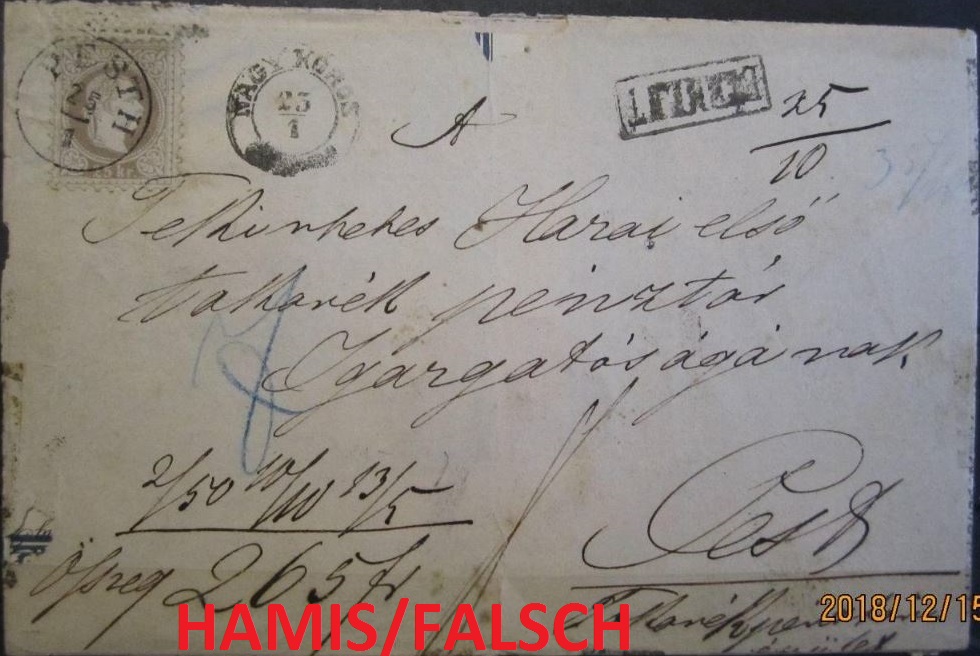 PESTH
NAGY KŐRÖS
23
1
A
25
10
Tekintetes Hazai első
takarék pénztár
Igazgatóságának
Pest
2/50 10/10 13/5
Összeg 265 fr
HAMIS/FALSCH
2018/12/15